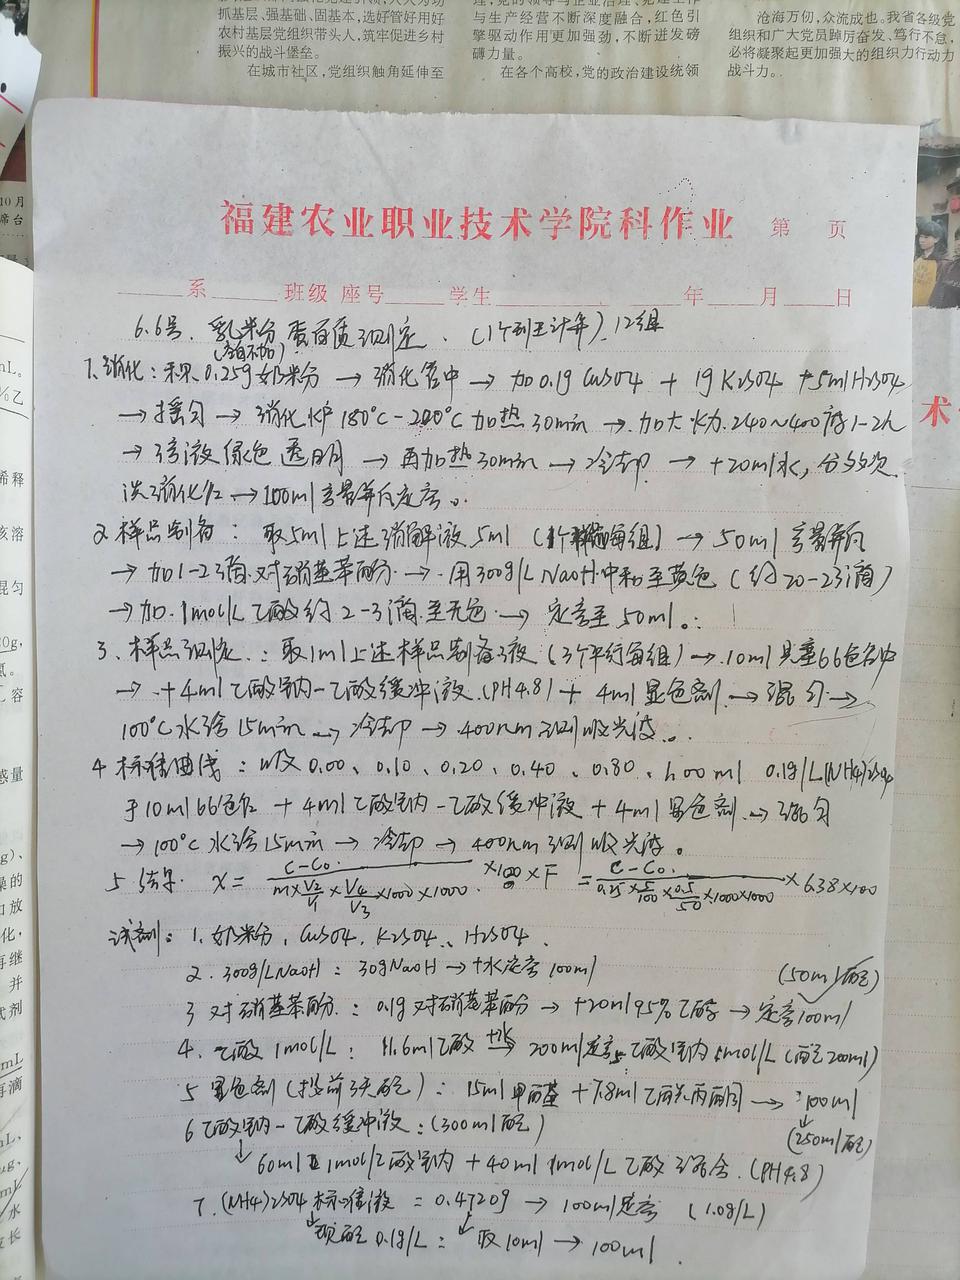 抓基层、强基础、固基本，选好管好用好
农村基层党组织带头人，筑牢促进乡村
振兴的战斗堡垒。
在城市社区，党组织触角延伸至
与生产经营不断深度融合，红色引
擎驱动作用更加强劲，不断迸发磅
礴力量。
在各个高校，党的政治建设统领
沧海万仞，众流成也。我省各级党
组织和广大党员踔厉奋发、笃行不怠，
必将凝聚起更加强大的组织力行动力
战斗力。
福建农业职业技术学院科作业 第 页
系 班级 座号 学生 年 月 日
6.6号、乳米粉 蛋白质测定 12组
1.消化：称 0.25g 奶米粉 → 消化管中 → 加0.1g CuSO4 + 1g K2SO4 + 5ml H2SO4
→ 摇匀 → 消化炉 180°C-200°C 加热 30min → 加大火力 240~400度 1-2h
→ 溶液 绿色 透明 → 再加热 30min → 冷却 → +20ml水，分多次
洗消化管 → 100ml 容量瓶内定容。
2 样品制备：取5ml上述消解液 5ml → 50ml容量瓶内
→ 加1-2滴 对硝基苯酚 → 用300g/L NaOH 中和至黄色（约 20-23滴）
→ 加 1mol/L 乙酸 约 2-3滴 至无色 → 定容至 50ml。
3、样品测定：取1ml上述样品制备液（3个平行每组）→ 10ml 具塞比色管中
→ +4ml 乙酸钠-乙酸缓冲液（PH4.8）+ 4ml 显色剂 → 混匀 →
100°C 水浴 15min → 冷却 → 400nm 测吸光度。
4 标准曲线：吸 0.00、0.10、0.20、0.40、0.80、1.00 ml 0.1g/L (NH4)2SO4
于10ml 比色管 + 4ml 乙酸钠-乙酸缓冲液 + 4ml 显色剂 → 混匀
→ 100°C 水浴 15min → 冷却 → 400nm 测吸光度。
5 结果 X = C-C0 / m×V2/V1×V4/V3×1000×1000 ×100×F = C-C0 / 0.25×5/100×0.5/50×1000×1000 ×6.38×100
试剂：1. 奶米粉、CuSO4、K2SO4、H2SO4、
2. 300g/L NaOH：30g NaOH → +水定容 100ml
(50ml配)
3 对硝基苯酚：0.1g 对硝基苯酚 → +20ml 95% 乙醇 → 定容100ml
4、乙酸 1mol/L：11.6ml 乙酸 → 200ml定容 乙酸钠 1mol/L（配200ml）
5 显色剂（提前3天配）：15ml 甲醛 + 7.8ml 乙酰丙酮 → 100ml
(250ml配)
6 乙酸钠-乙酸缓冲液：(300ml配)
60ml 1mol/L 乙酸钠 + 40ml 1mol/L 乙酸 混合 (PH4.8)
7. (NH4)2SO4 标准液 = 0.4720g → 100ml 定容 (1.0g/L)
现配 0.1g/L：取10ml → 100ml